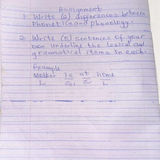 Assignment
1. Write (2) differences between
Phonetics and phonology.
2. Write (5) sentences of your
own underline the lexical and
grammatical items in each.
Example
Mother is at home
L G L